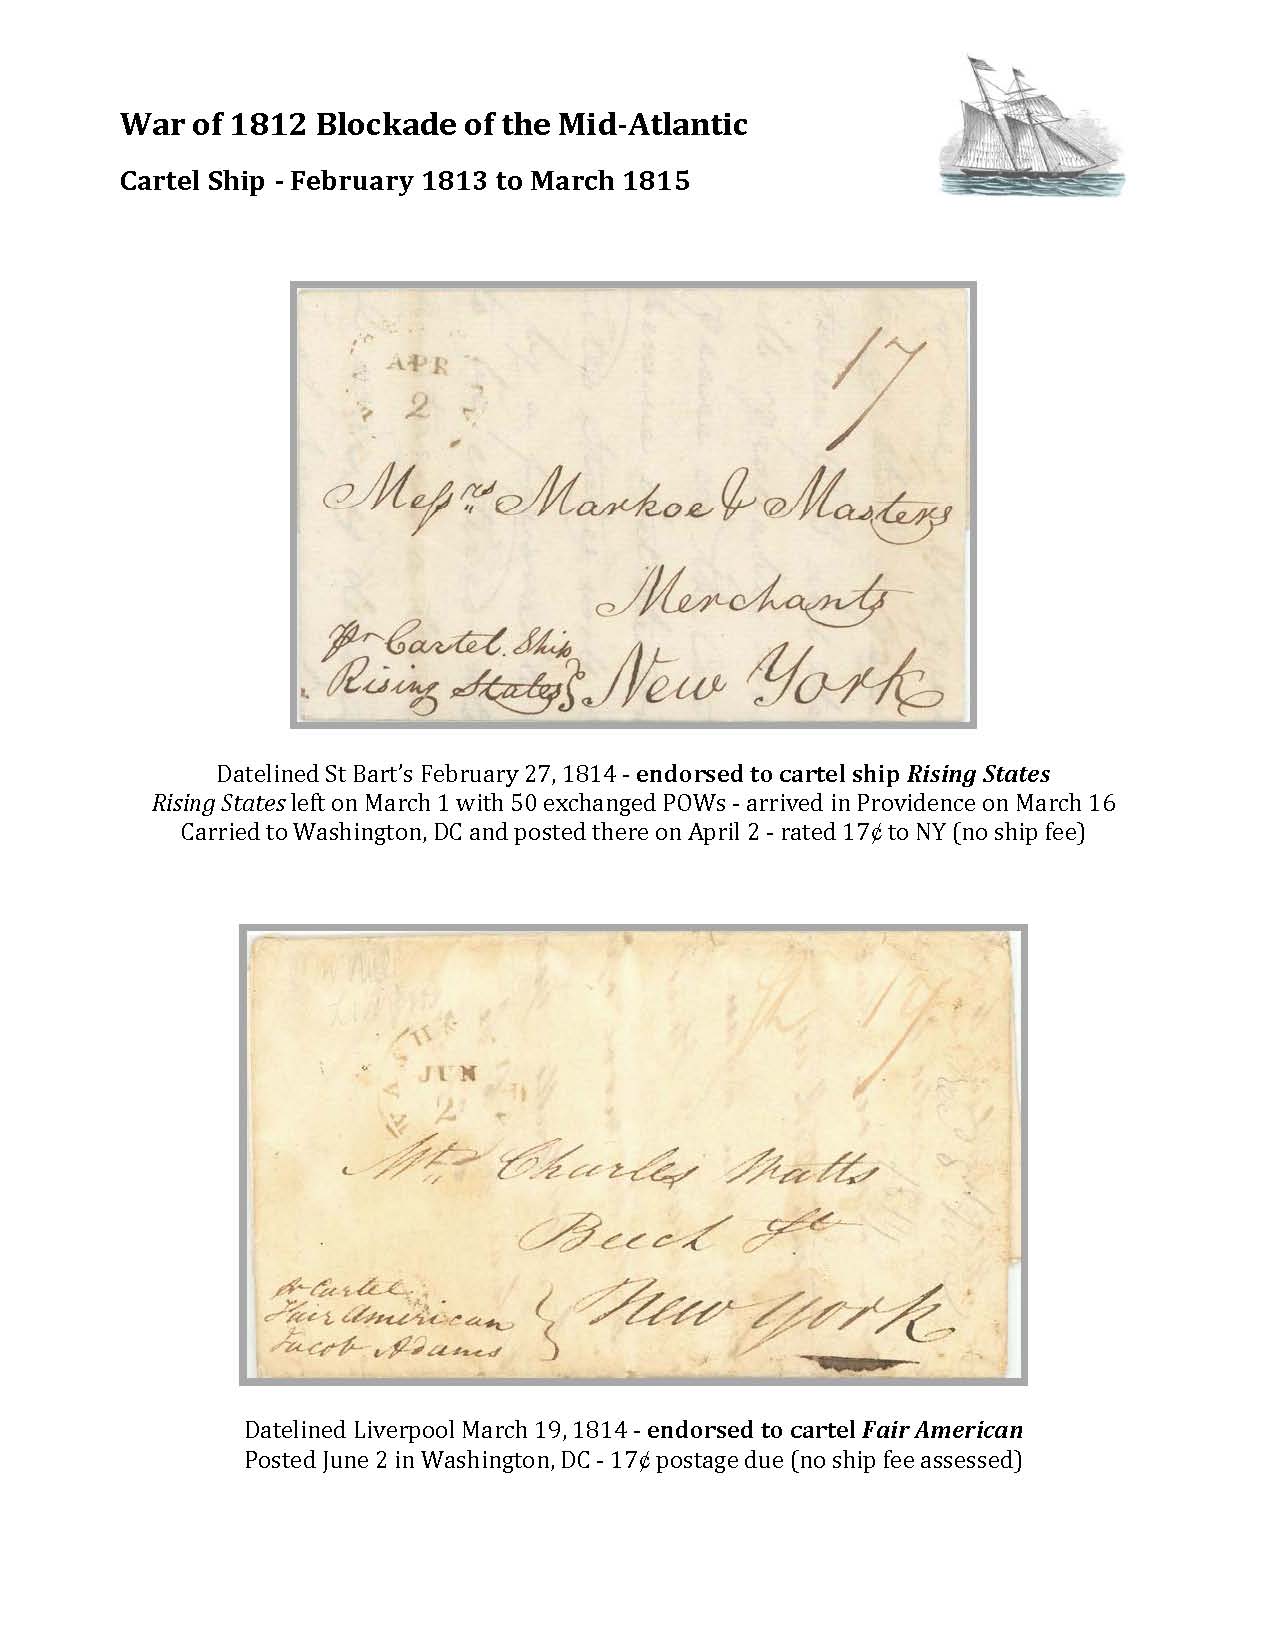 War of 1812 Blockade of the Mid-Atlantic
Cartel Ship - February 1813 to March 1815
APR
2
17
Messrs Markoe & Masters
Merchants
pr Cartel Ship
Rising States
New York
Datelined St Bart's February 27, 1814 - endorsed to cartel ship Rising States
Rising States left on March 1 with 50 exchanged POWs - arrived in Providence on March 16
Carried to Washington, DC and posted there on April 2 - rated 17¢ to NY (no ship fee)
17
JUN
2
Mr Charles Watts
Beech St
pr Cartel
Fair American
Jacob Adams
New York
Datelined Liverpool March 19, 1814 - endorsed to cartel Fair American
Posted June 2 in Washington, DC - 17¢ postage due (no ship fee assessed)